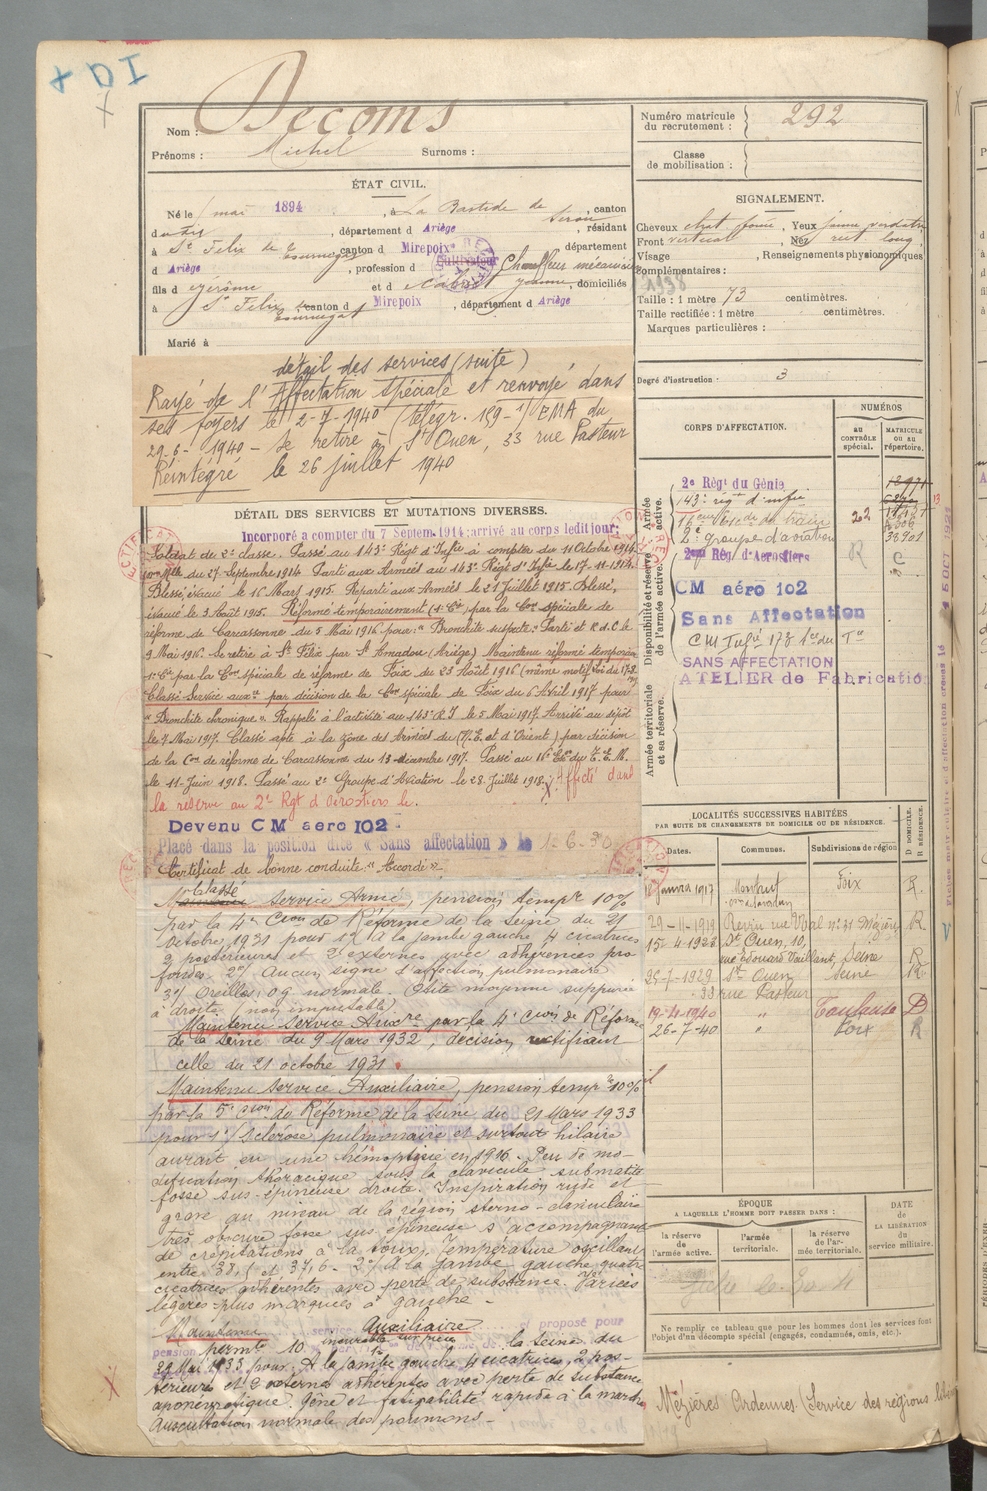 + D I
Nom : Decoms
Prénoms : Michel Surnoms :
ÉTAT CIVIL.
Né le mai 1894, à La Bastide de Serou, canton
dudit, département d Ariège, résidant
à St Felix de Tournegat canton d Mirepoix département
d Ariège, profession d Cultivateur Chauffeur mécanicien
fils d Jérôme et d domiciliés
à St Felix de Tournegat canton d Mirepoix, département d Ariège
Marié à
détail des services (suite)
Rayé de l'Affectation spéciale et renvoyé dans
ses foyers le 2-7-1940 (Télégr. 159-1/EMA du
29-6-1940 - Se retire à St Ouen, 33 rue Pasteur
Réintégré le 26 juillet 1940
DÉTAIL DES SERVICES ET MUTATIONS DIVERSES.
Incorporé à compter du 7 Septem. 1914: arrivé au corps ledit jour:
Soldat de 2e classe. Passé au 143e Régt d'Infie à compter du 11 Octobre 1914
du 27 Septembre 1914 Parti aux Armées au 143e Régt d'Infie le 17-11-1914.
Blessé, évacué le 16 Mars 1915. Reparti aux Armées le 21 Juillet 1915. Blessé,
évacué le 3 Août 1915. Réformé temporairement (1e Cie) par la Con spéciale de
réforme de Carcassonne du 5 Mai 1916 pour: "Bronchite suspecte". Parti et R.d.C. le
9 Mai 1916. Se retire à St Félix par St Amadou (Ariège) Maintenu réformé temporaire
1e Cie par la Con spéciale de réforme de Foix du 23 Août 1916 (même motif
Classé Service auxre par décision de la Con spéciale de Foix du 6 Avril 1917 pour
"Bronchite chronique". Rappelé à l'activité au 143e R I le 5 Mai 1917. Arrivé au dépôt
le 7 Mai 1917. Classé apte à la zone des Armées du (N.E et d'Orient) par décision
de la Con de réforme de Carcassonne du 13 décembre 1917. Passé au 16e Eon du T.E.M.
le 11 Juin 1918. Passé au 2e Groupe d'Aviation le 28 Juillet 1918. Affecté dans
la réserve au 2e Rgt d'aérostiers le.
Devenu CM aéro 102
Placé dans la position dite « Sans affectation » le 1-6-30
Certificat de bonne conduite: "Accordé"
Classé
Maintenu Service Armé, pension tempre 10%
par la 4e Cion de Réforme de la Seine du 21
Octobre 1931 pour 1°/ A la jambe gauche 4 cicatrices
2 postérieures et 2 externes avec adhérences pro
fondes. 2°/ Aucun signe d'affection pulmonaire
3°/ Oreilles: O g normale. Otite moyenne suppurée
à droite (non imputable)
Maintenu Service Auxre par la 4e Cion de Réforme
de la Seine du 9 Mars 1932, décision rectifiant
celle du 21 octobre 1931.
Maintenu Service Auxiliaire, pension temp re 10%
par la 5e Cion de Réforme de la Seine du 21 Mars 1933
pour 1°/ Sclérose pulmonaire et surtout hilaire
aurait eu une hémoptysie en 1916. Peu de mo-
dification thoracique sous la clavicule submatité
fosse sus-épineuse droite. Inspiration rude et
grave au niveau de la région sterno-claviculaire
très obscure fosse sus épineuse s'accompagnant
de crépitations à la toux. Température oscillant
entre 38,1 et 37,6 - 2°/ A la jambe gauche quatre
cicatrices adhérentes avec perte de substance. Varices
légères plus marquées à gauche -
Maintenu service Auxiliaire et proposé pour
pension permte 10 la Seine du
29 Mai 1933 pour: A la jambe gauche 4 cicatrices, 2 pos-
térieures et 2 externes adhérentes avec perte de substance
aponévrotique. Gêne et fatigabilité rapide à la marche
Auscultation normale des poumons -
Numéro matricule
du recrutement : 292
Classe
de mobilisation :
SIGNALEMENT.
Cheveux chat foncé, Yeux jaune verdâtre
Front vertical, Nez rect long,
Visage, Renseignements physionomiques
complémentaires :
1938
Taille : 1 mètre 73 centimètres.
Taille rectifiée : 1 mètre centimètres.
Marques particulières :
Degré d'instruction : 3
CORPS D'AFFECTATION.
NUMÉROS
au
CONTRÔLE
spécial.
MATRICULE
OU AU
répertoire.
Armée
active.
Disponibilité et réserve
de l'armée active.
Armée territoriale
et sa réserve.
2e Régt du Génie
143e régt d'infie
16eme Esc de du train 22
2e groupe d'aviation 38901
2eme Rég. d'Aérostiers R
CM aéro 102
Sans Affectation
CM Infie 173
SANS AFFECTATION
ATELIER de Fabricatio
LOCALITÉS SUCCESSIVES HABITÉES
PAR SUITE DE CHANGEMENTS DE DOMICILE OU DE RÉSIDENCE.
Dates.
Communes.
Subdivisions de région
D. DOMICILE.
R. RÉSIDENCE.
Janvier 1917 Foix R.
29-11-1919 Revin rue Mézières R
15-4-1928 St Ouen, 10,
rue Edouard Vaillant, Seine R
25-7-1929 St Ouen Seine R
33 rue Pasteur
19-4-1940 " Toulouse D
26-7-40 " Foix R
ÉPOQUE
A LAQUELLE L'HOMME DOIT PASSER DANS :
la réserve
de
l'armée active.
l'armée
territoriale.
la réserve
de l'ar-
mée territoriale.
DATE
de
LA LIBÉRATION
du
service militaire.
Ne remplir ce tableau que pour les hommes dont les services font
l'objet d'un décompte spécial (engagés, condamnés, omis, etc.).
Mézières Ardennes (Service des régions